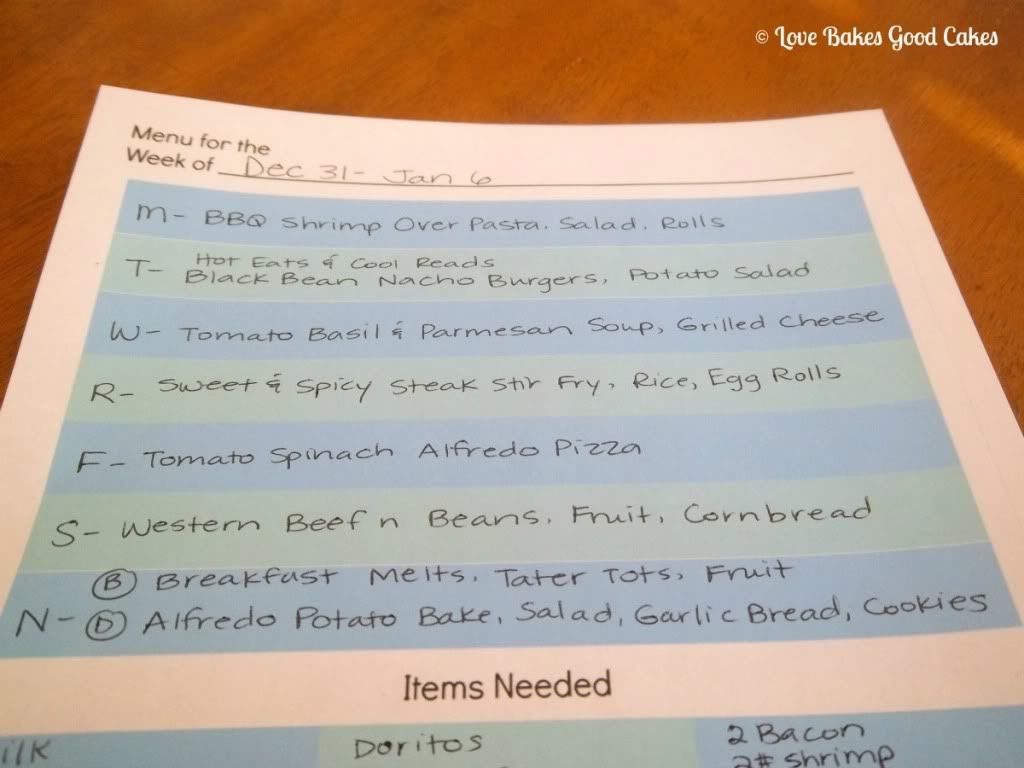 © Love Bakes Good Cakes
Menu for the
Week of Dec 31- Jan 6
M- BBQ Shrimp Over Pasta. Salad. Rolls
Hot Eats & Cool Reads
T- Black Bean Nacho Burgers, Potato Salad
W- Tomato Basil & Parmesan Soup, Grilled Cheese
R- Sweet & Spicy Steak Stir Fry, Rice, Egg Rolls
F- Tomato Spinach Alfredo Pizza
S- Western Beef n Beans, Fruit, Cornbread
B Breakfast Melts, Tater Tots, Fruit
N- D Alfredo Potato Bake, Salad, Garlic Bread, Cookies
Items Needed
Doritos
2 Bacon
2# shrimp